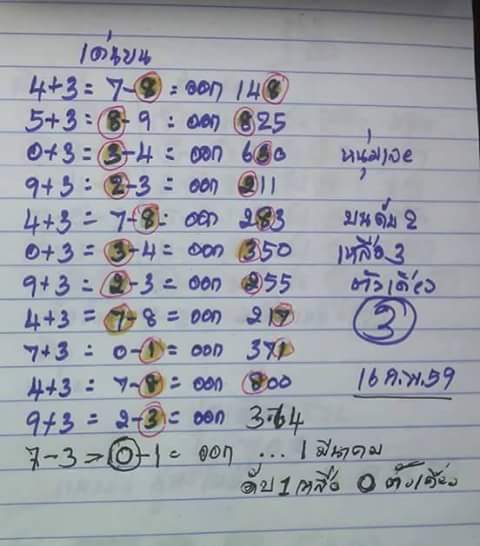 เด่นบน
4+3 = 7-8 = ออก 148
5+3 = 8-9 = ออก 825
0+3 = 3-4 = ออก 630
หนุ่มเลย
9+3 = 2-3 = ออก 211
4+3 = 7-8 = ออก 283
บนดับ 2
0+3 = 3-4 = ออก 350
เหลือ 3
9+3 = 2-3 = ออก 255
ตัวเดียว
4+3 = 7-8 = ออก 217
3
7+3 = 0-1 = ออก 371
4+3 = 7-8 = ออก 800
16 ก.พ. 59
9+3 = 2-3 = ออก 364
7-3 = 0-1 = ออก ... 1 มีนาคม
ดับ 1 เหลือ 0 ตัวเดียว